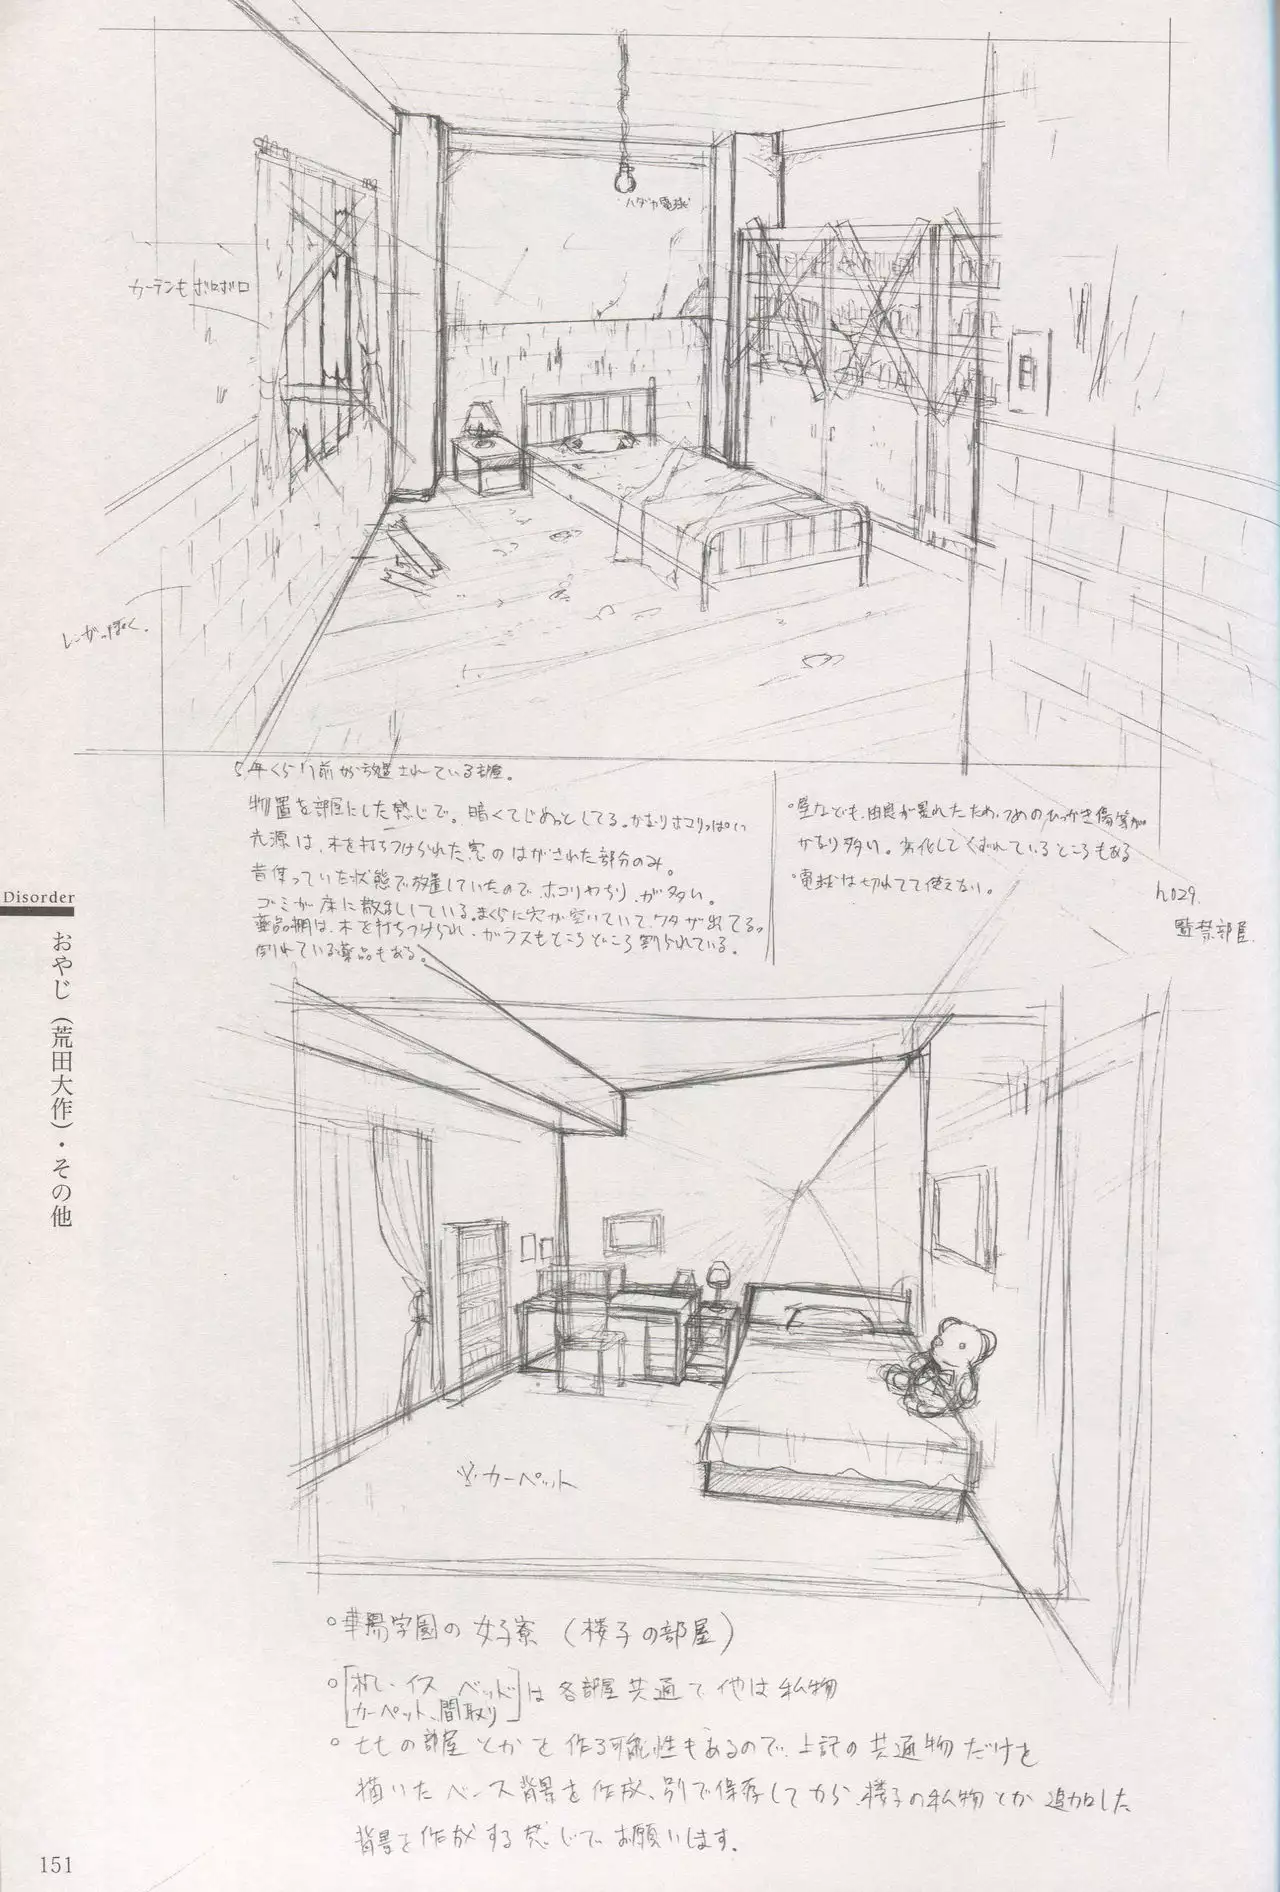 ハダカ電球
カーテンもボロボロ
レンガっぽく。
5年くらい前から放置されている部屋。
物置を部屋にした感じで。暗くてじめっとしてる。かなりホコリっぽい
光源は、木を打ちつけられた窓のはがされた部分のみ。
昔使っていた状態で放置していたので、ホコリやちりが多い。
ゴミが床に散乱している。まくらに穴が空いていて、ワタが出てる。
薬品棚は、木を打ちつけられ、ガラスもところどころ割られている。
倒れている薬品もある。
・壁なども、由良が暴れたため、つめのひっかき傷等が
かなり多い。劣化してくずれているところもある
・電球は切れてて使えない。
h029.
監禁部屋
Disorder
おやじ（荒田大作）・その他
カーペット
○華陽学園の女子寮（楼子の部屋）
○[机・イス ベッド
カーペット、間取り]は各部屋共通で他は私物
○七七の部屋とかを作る可能性もあるので、上記の共通物だけを
描いたベース背景を作成、別で保存してから、楼子の私物とか追加した
背景を作成する感じでお願いします。
151